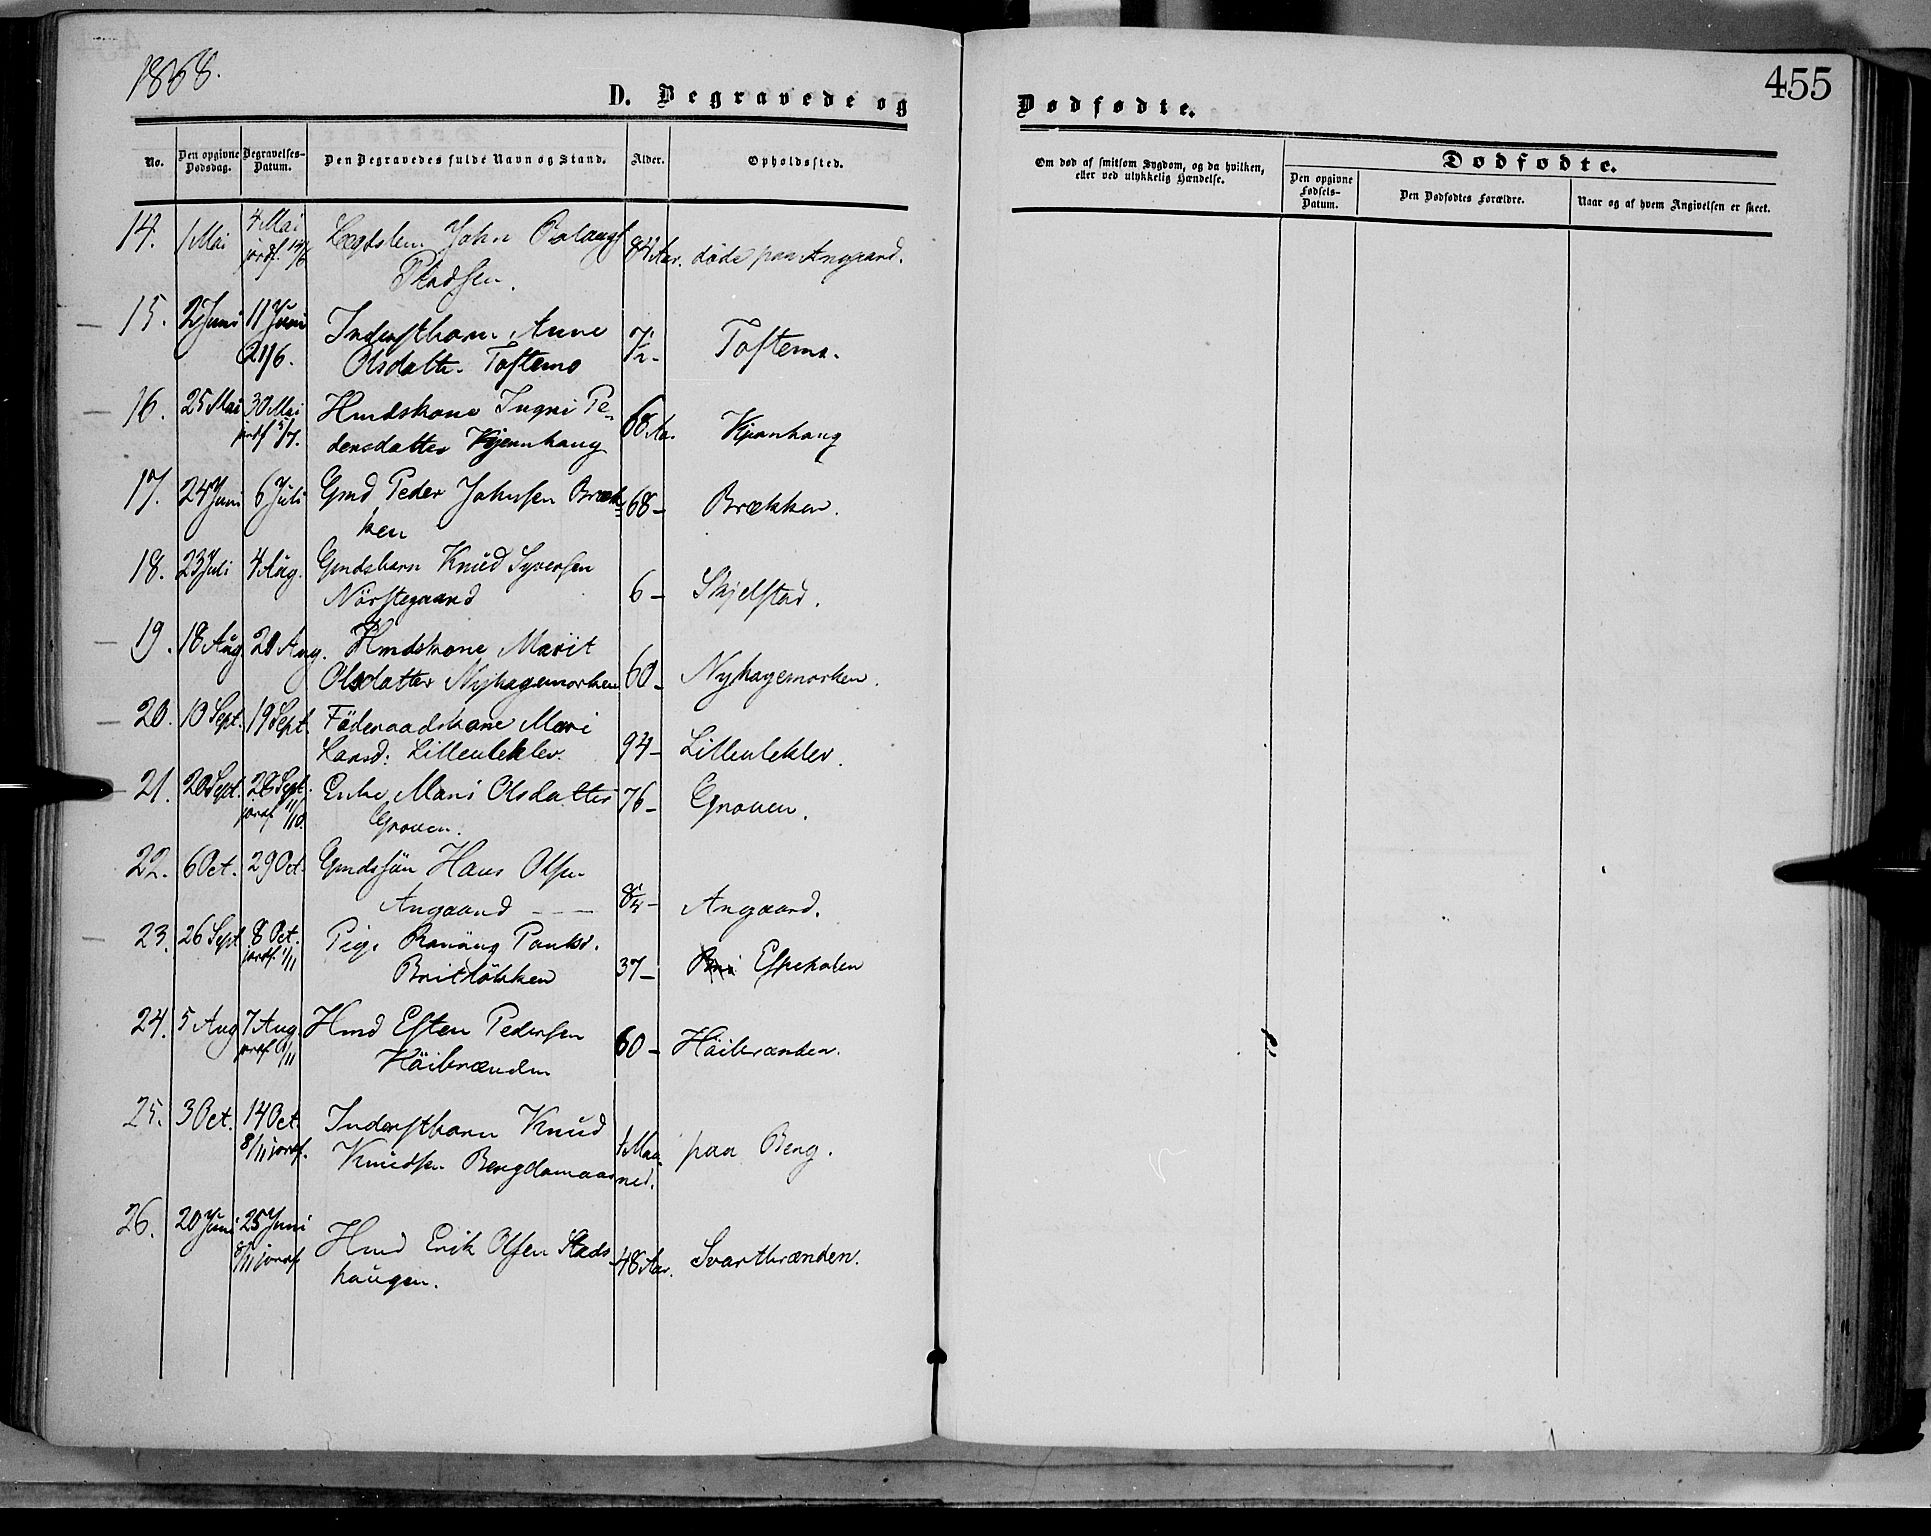 1868.
455
D. Begravede og Dødfødte.
No. Den opgivne Dødsdag. Begravelses-Datum. Den Begravedes fulde Navn og Stand. Alder. Opholdssted. Om død af smitsom Sygdom, og da hvilken, eller ved ulykkelig Hændelse. Dødfødte.
Den opgivne Fødsels-Datum. Den Dødfødtes Forældre. Naar og af hvem Angivelsen er skeet.
14. 1 Mai 4 Mai Lægdslem John 84 Aar. døde paa Angaard.
jordf.
Pladsen.
15. 2 Juni 11 Juni Inderstbarn Anne
21/6. Olsdatter Toftemo 7/12 - Toftemo.
16. 25 Mai 30 Mai Hmdskone Ingri Pe-
jordf 5/7. dersdatter Kjønhaug 68 Aar Kjønhaug
17. 24 Juni 6 Juli Gmd Peder Johnsen Bræk- 68 - Brækken.
ken
18. 23 Juli 4 Aug. Gmdsbarn Knud Syversen
Nørstegaard 6 - Skjelstad.
19. 18 Aug 20 Aug. Hmdskone Marit
Olsdatter Nyhagemorken 60 - Nyhagemorken.
20. 10 Sept. 19 Sept. Föderaadskone Mari
Larsd: Lilleulekler. 94 - Lilleulekler.
21. 20 Sept. 28 Sept. Enke Mari Olsdatter 76 - Grouen.
jordf 11/10. Grouen.
22. 6 Oct. 29 Oct. Gmdssön Hans Olsen
Angaard - - - 8/4 - Angaard.
23. 26 Sept 8 Oct. Pige Rönnaug Paulsd.
jordf. 1/11 Britsökken 37 - Espeholen
24. 5 Aug 7 Aug. Hmd Esten Pedersen
jordf /11 Höibrænden 60 - Höibrænden.
25. 3 Oct. 14 Oct. Inderstbarn Knud
8/11 jordf. Knudsen Bergdamaas 1 Maa- paa Berg.
ned.
26. 20 Juni 25 Juni
8/11 jordf Hmd Erik Olsen Stads- 48 Aar. Svartbrænden.
haugen.